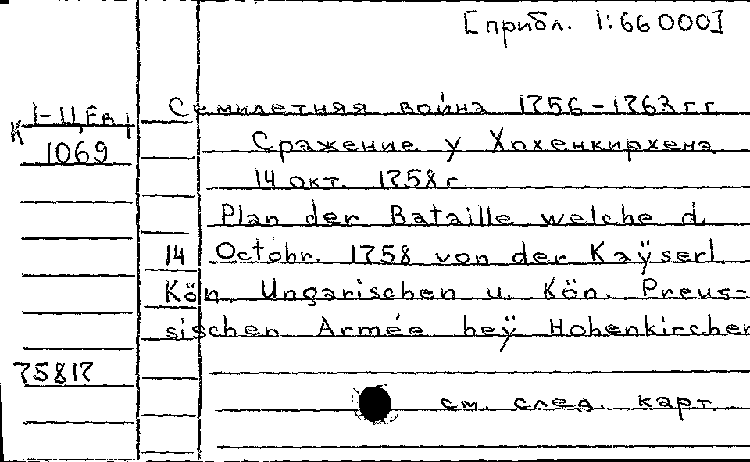 [прибл. 1:66 000]
К 1-II, Ев 1
1069
Семилетняя война 1756-1763 гг
Сражение у Хохенкирхена
14 окт. 1758 г
Plan der Bataille welche d.
14 Octobr. 1758 von der Kaÿserl
Kön Ungarischen u. Kön. Preus=
sischen Armée beÿ Hohenkirchen
75817
см. след. карт.